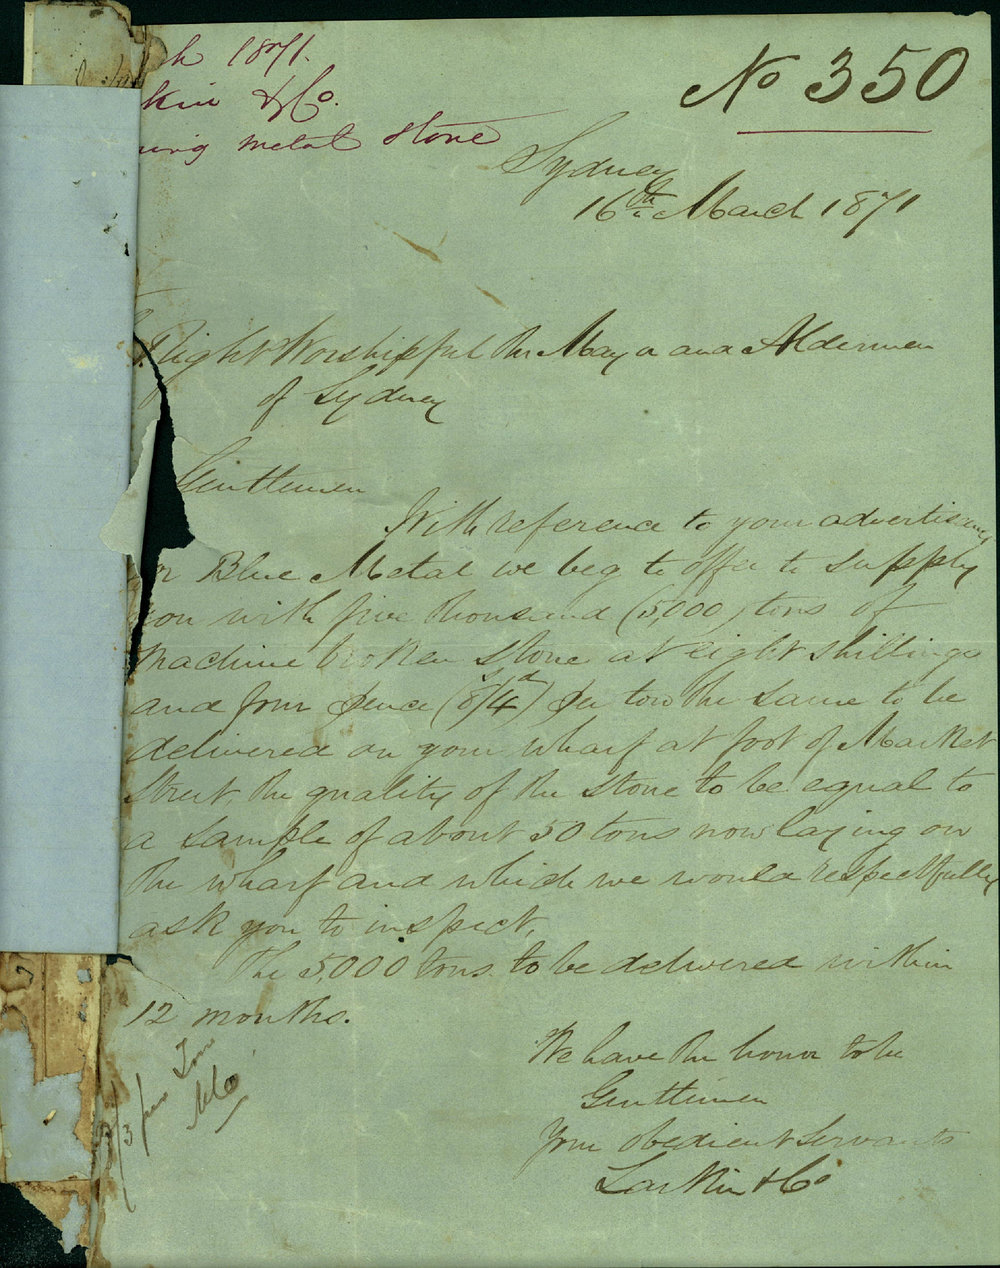 ch 1871.
kin & Co.
ing metal stone
No 350
Sydney
16th March 1871
Right Worshipful the Mayor and Aldermen
of Sydney
Gentlemen
With reference to your advertising
for Blue Metal we beg to offer to supply
you with five thousand (5,000) tons of
machine broken stone at eight shillings
and four pence (8s/4d) per ton the same to be
delivered on your wharf at foot of Market
Street, the quality of the stone to be equal to
a sample of about 50 tons now laying on
the wharf and which we would respectfully
ask you to inspect.
The 5,000 tons to be delivered within
12 months.
We have the honor to be
Gentlemen
Your obedient Servants
Larkin & Co
/3 per Ton